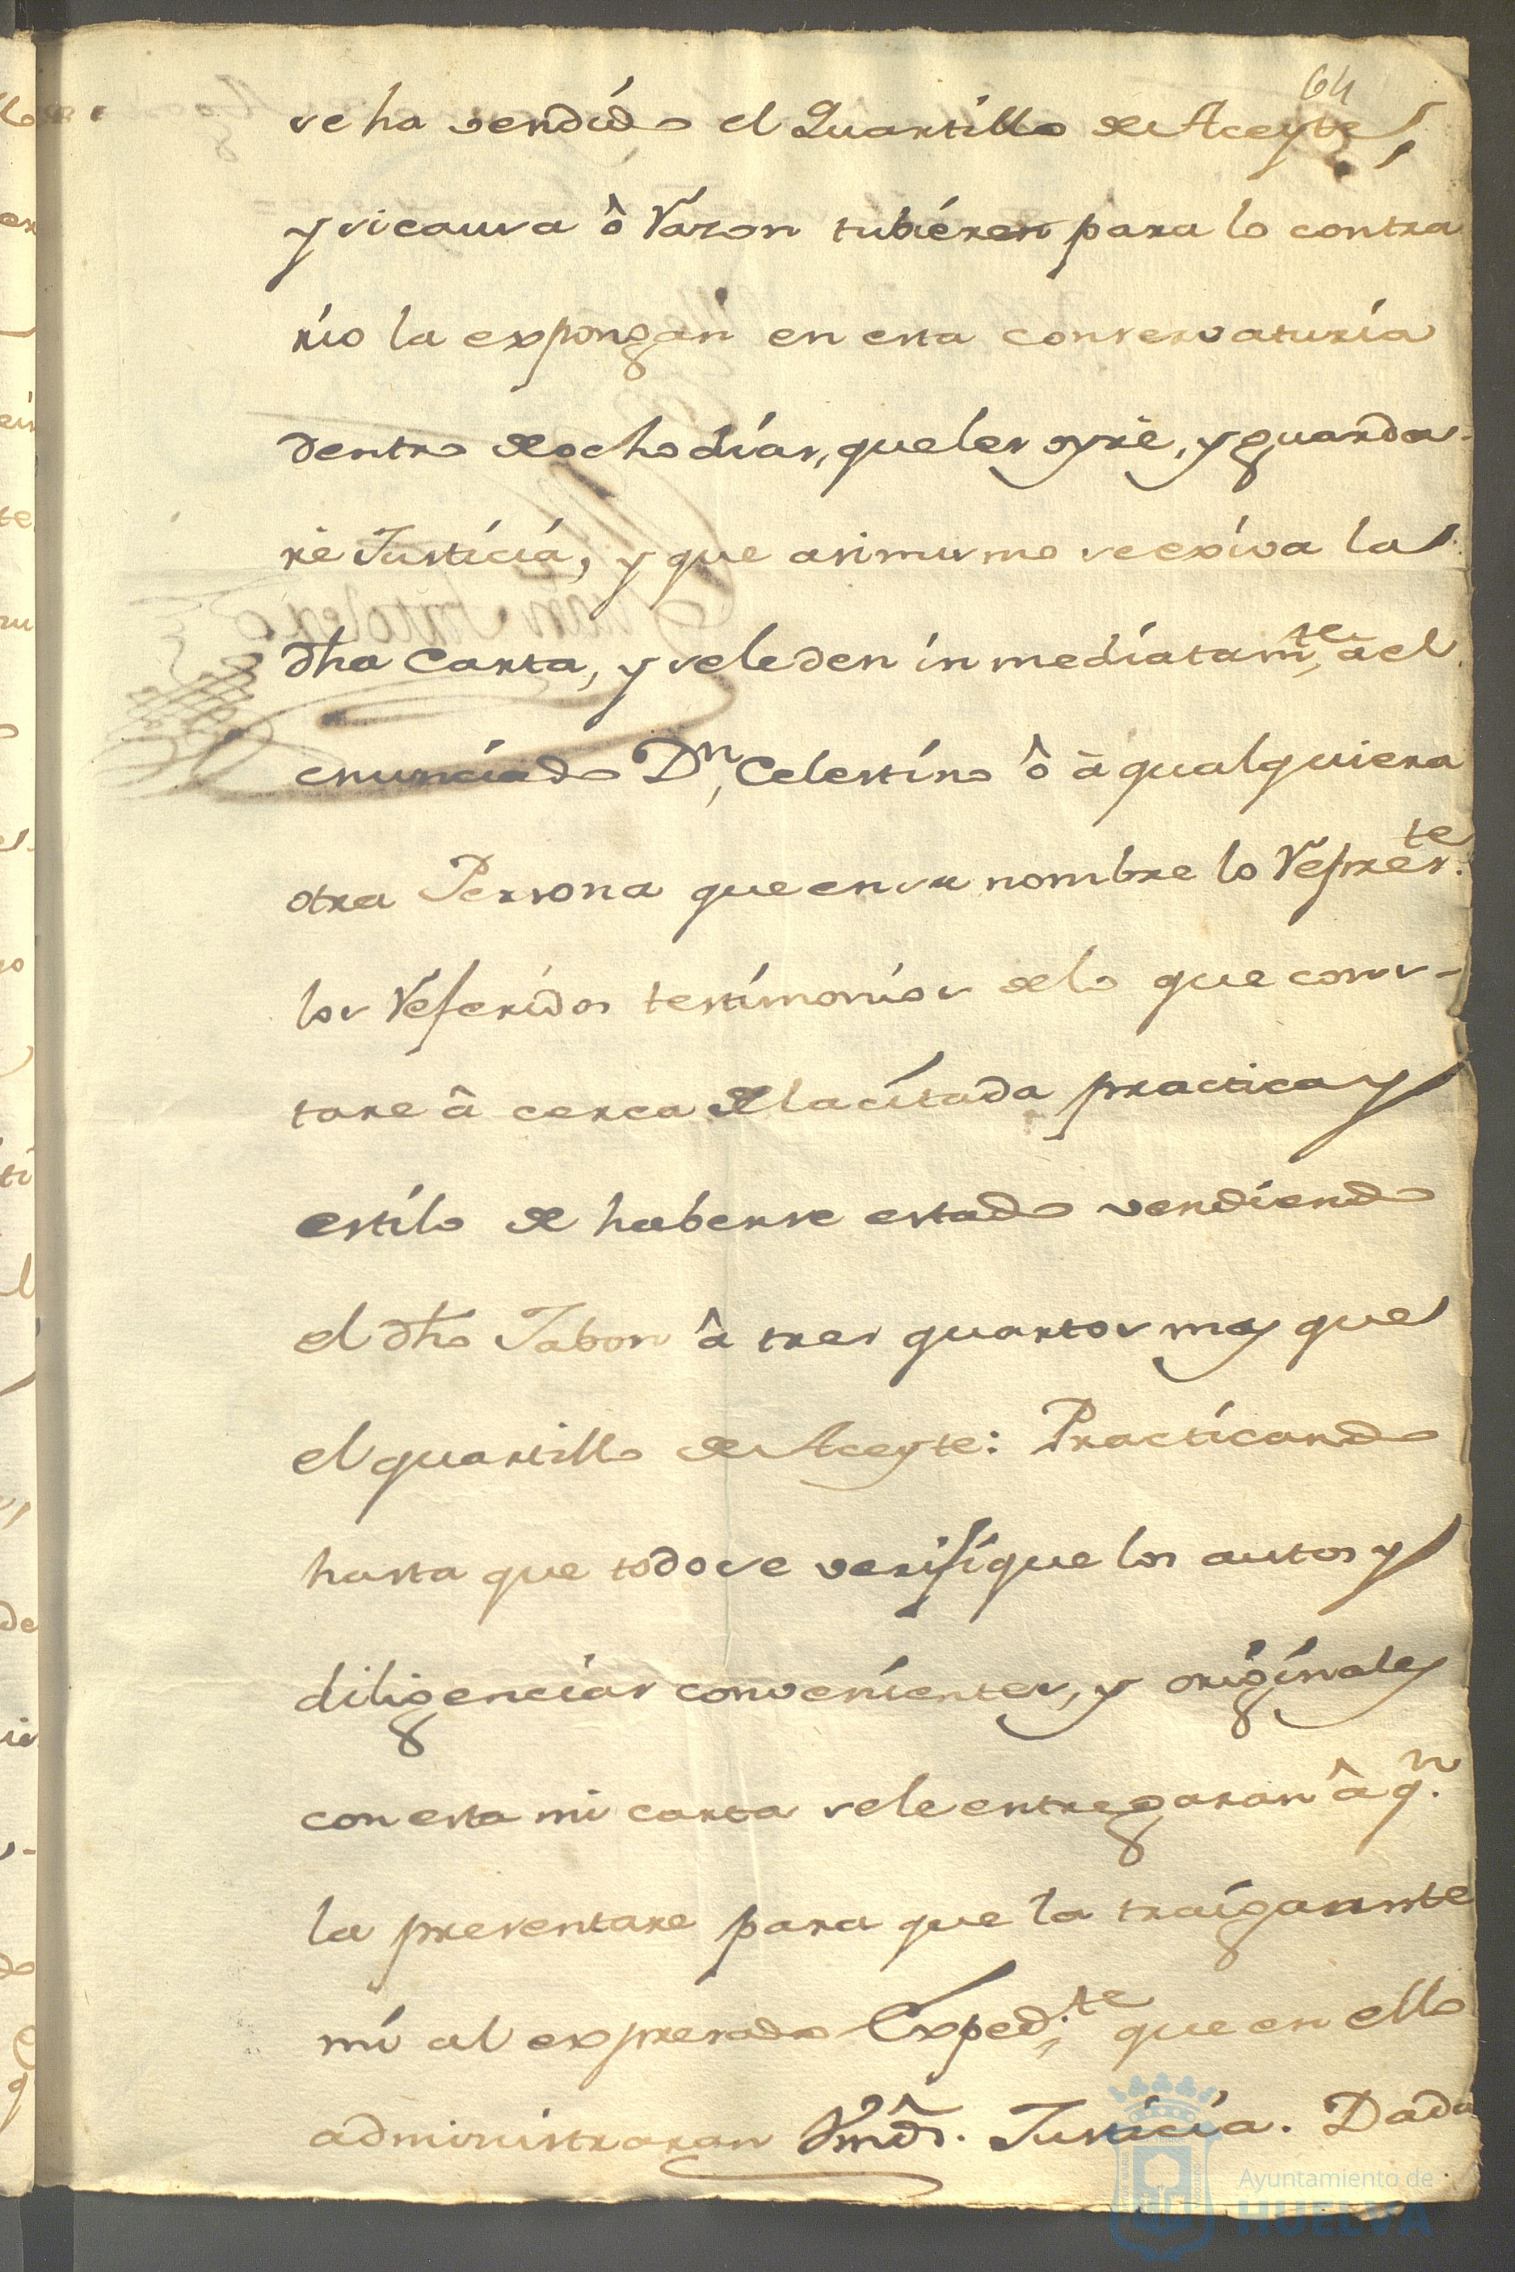 64
se ha vendido el Quartillo de Aceyte,
y si causa ô Razon tubiéren para lo contra
rio la expongan en esta conservaturia
dentro de ocho dias, que les oyré, y guarda-
ré Justicia, y que asimismo se exiva la
dha Carta, y se le den inmediatam.te à el
enunciado D.n Celestino ô à qualquiera
otra Persona que en su nombre lo Represt.te
los Referidos testimonios de lo que cons-
tare â cerca de la citada practica y
estilo de haberse estado vendiendo
el dho Jabon â tres quartos mas que
el quartillo de Aceyte: Practicando
hasta que todo se verifique los autos y
diligencias convenientes, y originales
con esta mi carta se le entregaran â q.n
la presentare para que la traiga ante
mi al expresado Exped.te que en ello
administraran Vmds. Justicia. Dada
Ayuntamiento de
HUELVA